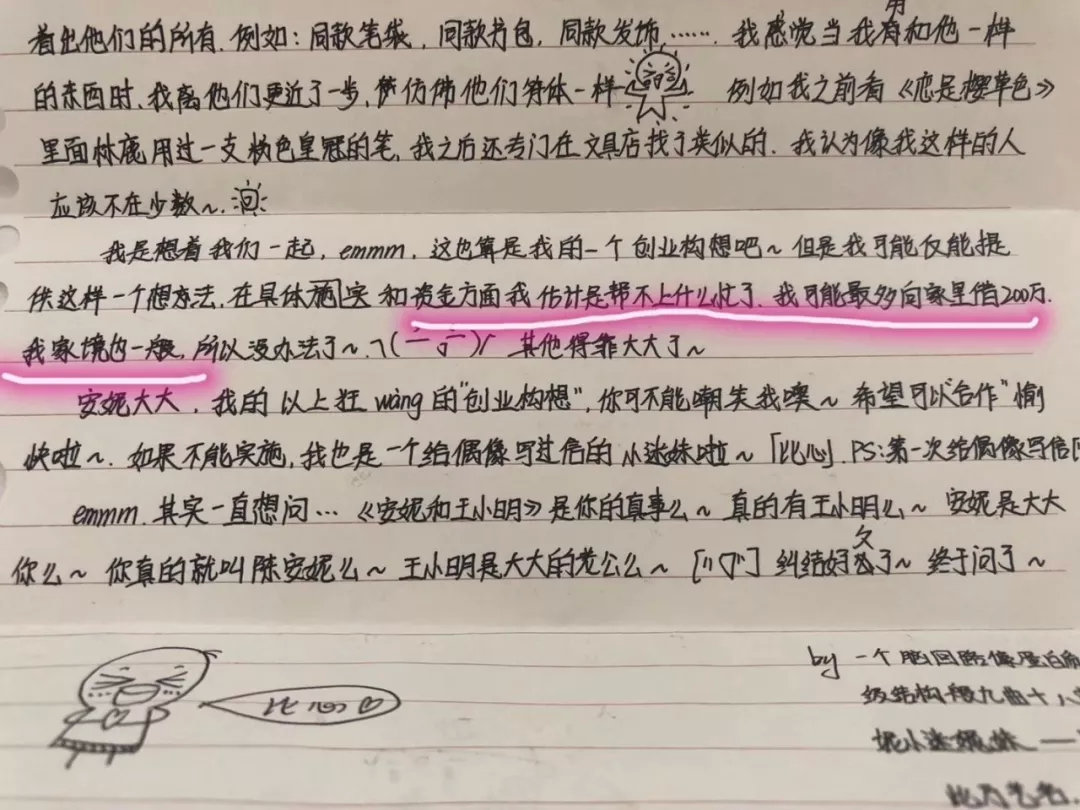 用
着出他们的所有.例如:同款笔袋,同款书包,同款发饰……我感觉当我有和他一样
的东西时,我离他们更近了一步,仿佛他们等体一样 例如我之前看《恋是樱草色》
里面林鹿用过一支粉色皇冠的笔,我之后还专门在文具店找了类似的.我认为像我这样的人
应该不在少数~.
我是想着我们一起,emmm,这也算是我的一个创业构想吧~但是我可能仅能提
供这样一个想方法,在具体施实和资金方面我估计是帮不上什么忙了.我可能最多向家里借200万.
我家境也一般,所以没办法了~.ㄟ(一 一)ㄏ 其他得靠大大了~
安妮大大,我的以上狂wàng的"创业构想",你可不能嘲笑我噢~希望可以"合作"愉
快啦~.如果不能实施,我也是一个给偶像写过信的小迷妹啦~「比心」.PS:第一次给偶像写信
emmm.其实一直想问…《安妮和王小明》是你的真事么~真的有王小明么~安妮是大大
你么~你真的就叫陈安妮么~王小明是大大的老公么~ 纠结好久了~终于问了~
比心♡
by 一个脑回路像蛋白质
级结构般九曲十八
妮小迷妹 —